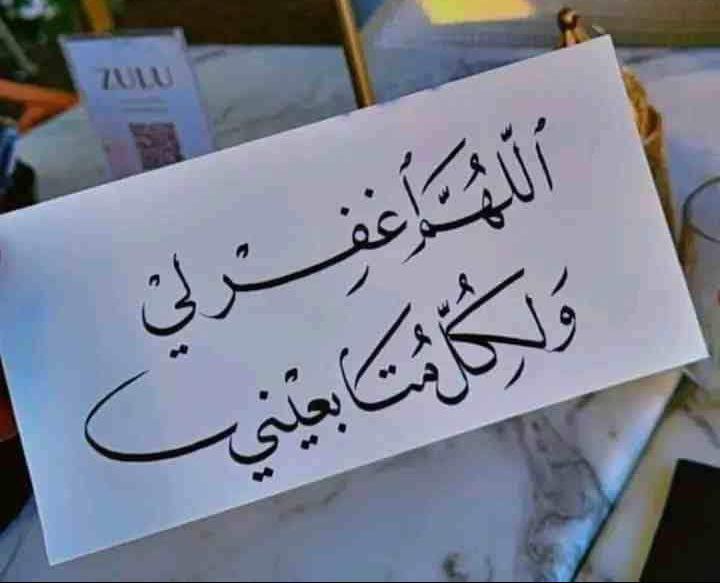 ZULU
اللّهُمَّ أغفِرْ لِيْ
وَلِكُلِّ مُتَابعِيْني